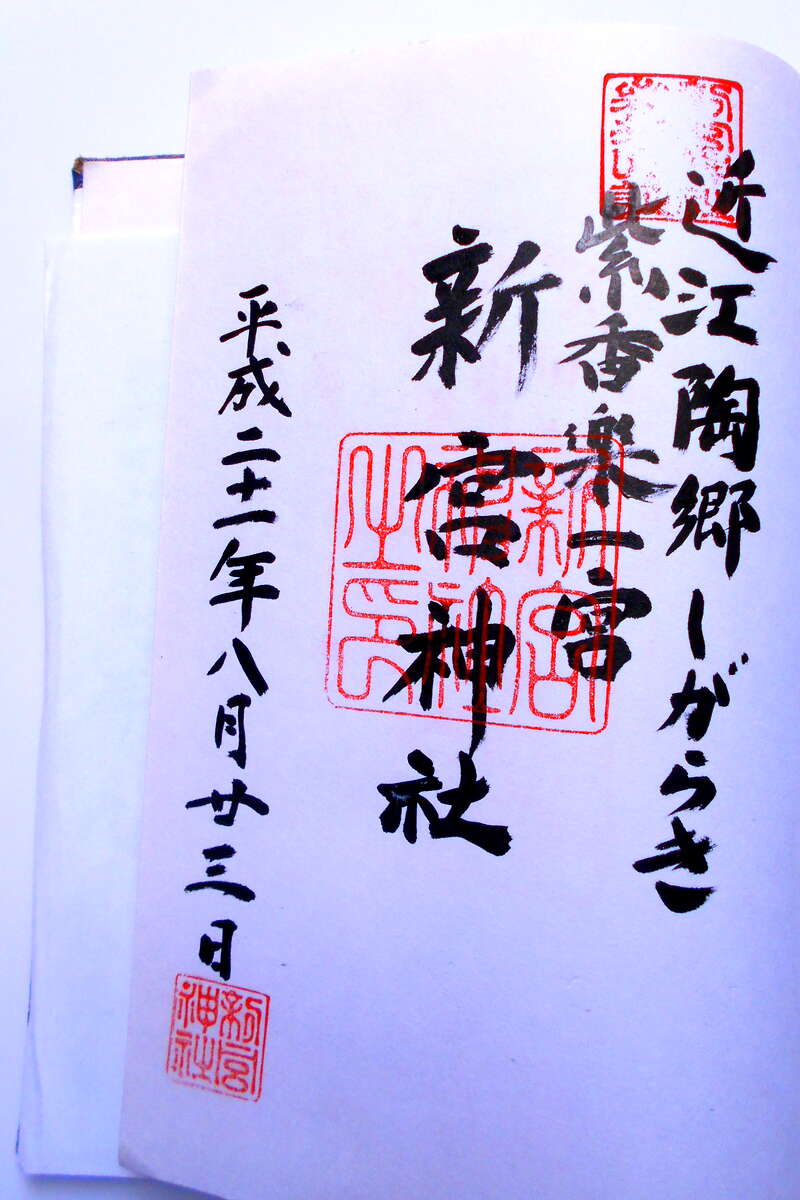 近江陶郷しがらき
紫香楽一宮
新宮神社
平成二十一年八月廿三日
新宮神社之印
新宮神社